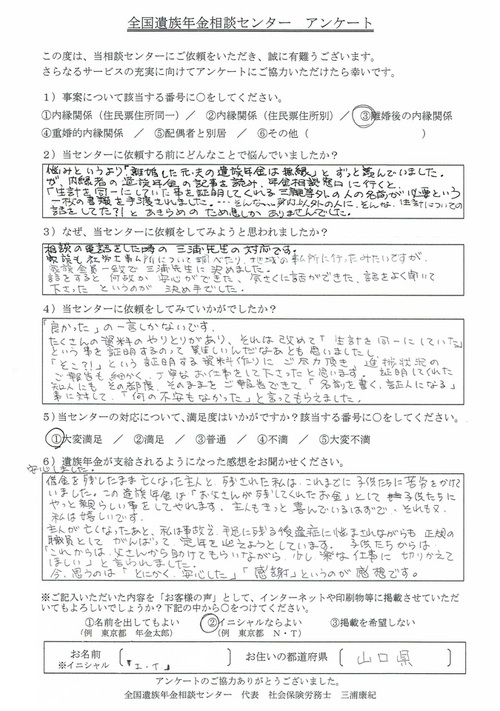 全国遺族年金相談センター　アンケート
この度は、当相談センターにご依頼をいただき、誠に有難うございます。
さらなるサービスの充実に向けてアンケートにご協力いただけたら幸いです。
1）事案について該当する番号に○をしてください。
①内縁関係（住民票住所同一）／　②内縁関係（住民票住所別）／③離婚後の内縁関係
④重婚的内縁関係　／　⑤配偶者と別居　／　⑥その他（　　　　　　　　）
2）当センターに依頼する前にどんなことで悩んでいましたか？
悩みというより「離婚した元夫の遺族年金は無縁」とずっと思っていました。
が、内縁者の遺族年金の記事を読み、年金相談窓口に行くと、
「生計を同一にしていた事を証明してくれる三親等外の人の名前が必要という
一枚の書類を手渡されました。…そんな…身内以外の人に、そんな、生計についての
話をしてた?!とあきらめのため息しかありませんでした。
3）なぜ、当センターに依頼をしてみようと思われましたか？
相談の電話をした時の三浦先生の対応です。
家族も社労士事ム所について調べたり、地域の事ム所に行ったみたいですが、
家族全員一致で三浦先生に決めました。
話をすると何故か安心ができた、気さくに話ができた、話をよく聞いて
下さったというのが決め手でした。
4）当センターに依頼をしてみていかがでしたか？
「良かった」の一言しかないです。
たくさんの資料のやりとりがあり、それは改めて「生計を同一にしていた」
という事を証明するのって難しいんだなあとも思いましたし、
「そこ?!」という証明する資料作りにご尽力頂き、進捗状況の
ご報告も細かく、丁寧なお仕事をして下さったと思います。証明してくれた
知人にもその都度、そのままをご報告できて「名前を書く、証人になる」
事に対して、「何の不安もなかった」と言ってもらえました。
5）当センターの対応について、満足度はいかがですか？該当する番号に○をしてください。
①大変満足　／　②満足　／　③普通　／　④不満　／　⑤大変不満
6）遺族年金が支給されるようになった感想をお聞かせください。
安心しました。
借金を残したまま亡くなった主人と、残された私は、これまでに子供たちに苦労をかけて
いました。この遺族年金は「お父さんが残してくれたお金」として子供たちに
やっと親らしい事をしてやれます。主人もきっと喜んでいるはずで、それも又、
私は嬉しいです。
主人が亡くなったあと、私は事故で手足に残る後遺症に悩まされながらも正規の
職員としてがんばって定年を迎えようとしています。子供たちからは
「これからは、父さんから助けてもらいながら少し楽な仕事に切りかえて
ほしい」と言われました。
今、思うのは「とにかく、安心した」「感謝」というのが感想です。
※ご記入いただいた内容を「お客様の声」として、インターネットや印刷物等に掲載させていただ
いてもよろしいでしょうか？下記の中から○をつけてください。
①名前を出してもよい　②イニシャルならよい　③掲載を希望しない
（例　東京都　年金太郎）　（例　東京都　N・T）
お名前
※イニシャル
「エ・イ」
お住いの都道府県
山口県
アンケートのご協力ありがとうございました。
全国遺族年金相談センター　代表　社会保険労務士　三浦康紀